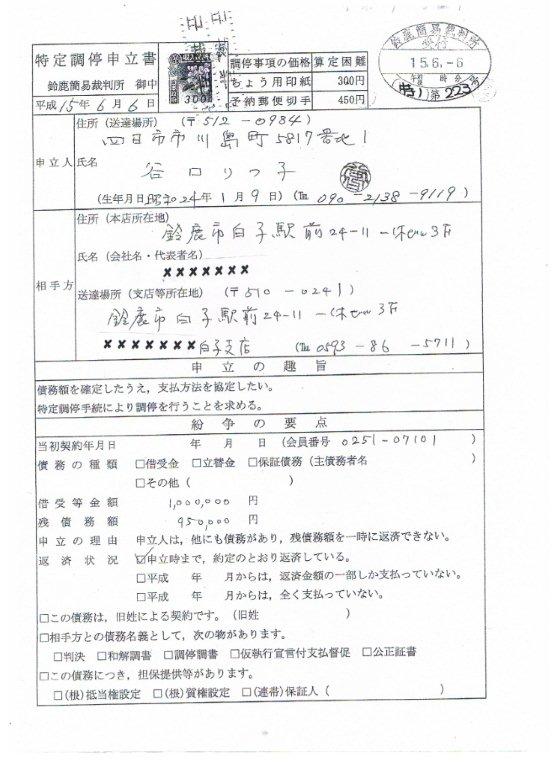 特定調停申立書
鈴鹿簡易裁判所 御中
平成15年6月6日
印
印
300
調停事項の価格 算定困難
ちょう用印紙 300円
予納郵便切手 450円
鈴鹿簡易裁判所
15.6.-6
第223号
申立人
住所(送達場所) (〒512-0984)
四日市市川島町5817番地1
氏名
谷口りつ子
(生年月日昭和24年1月9日) (℡ 090-2138-9119)
相手方
住所(本店所在地)
鈴鹿市白子駅前24-11
氏名(会社名・代表者名)
×××××××
送達場所(支店等所在地) (〒510-0241)
鈴鹿市白子駅前24-11
×××××××白子支店 (℡ 0593-86-5711)
申立の趣旨
債務額を確定したうえ,支払方法を協定したい。
特定調停手続により調停を行うことを求める。
紛争の要点
当初契約年月日 年 月 日 (会員番号 0251-07101 )
債務の種類 □借受金 □立替金 □保証債務(主債務者名 )
□その他( )
借受等金額 1,000,000 円
残債務額 950,000 円
申立の理由 申立人は,他にも債務があり,残債務額を一時に返済できない。
返済状況 ☑申立時まで,約定のとおり返済している。
□平成 年 月からは,返済金額の一部しか支払っていない。
□平成 年 月からは,全く支払っていない。
□この債務は,旧姓による契約です。(旧姓 )
□相手方との債務名義として,次の物があります。
□判決 □和解調書 □調停調書 □仮執行宣言付支払督促 □公正証書
□この債務につき,担保提供等があります。
□(根)抵当権設定 □(根)質権設定 □(連帯)保証人( )